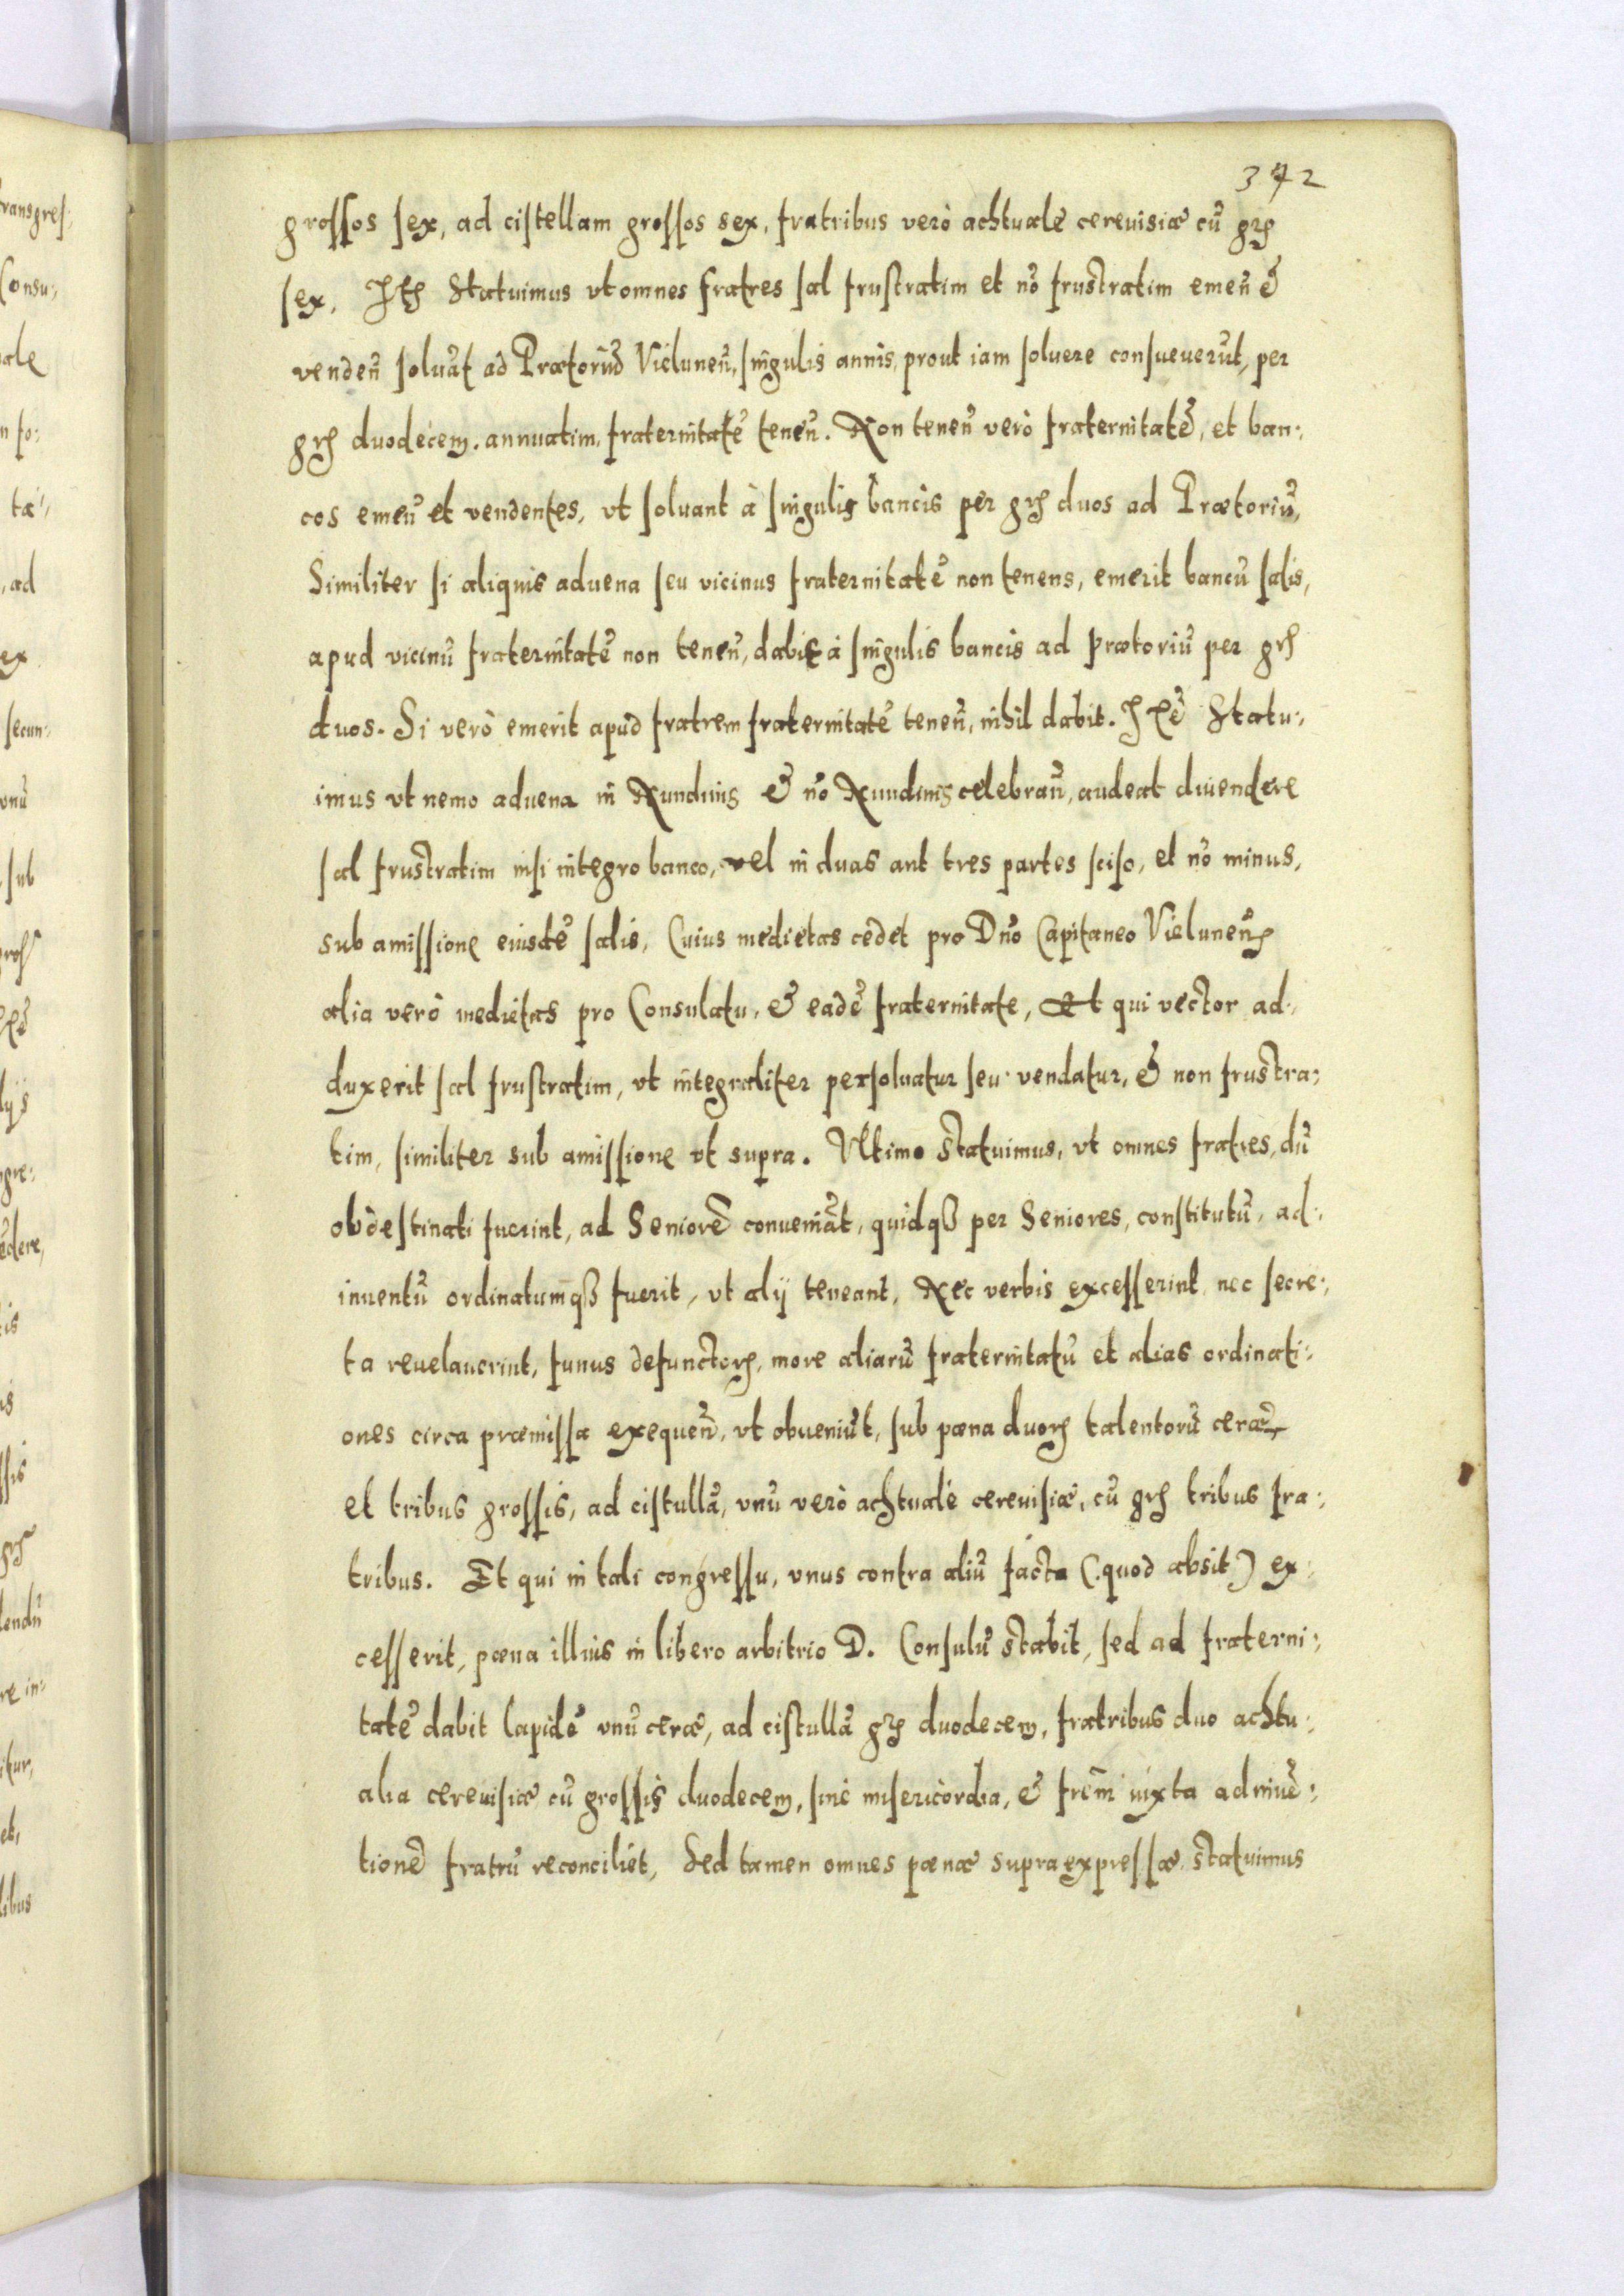 372
grossos sex, ad cistellam grossos sex, fratribus verò achtuale cerevisiæ cū grs̄
sex. Itē Statuimus vt omnes fratres sal frustratim et nō frustratim emen̄ &
venden̄ solvāt ad Prætoriū Vielunen̄, singulis annis, prout iam soluere consueuerūt, per
grs̄ duodecem. annuatim, fraternitatē tenen̄. Non tenen̄ verò fraternitatē, et ban:
cos emen̄ et vendentes, vt soluant à singulis bancis per grs̄ duos ad Prætoriū,
Similiter si aliquis aduena seu vicinus fraternitatē non tenens, emerit bancū salis,
apud vicinū fraternitatē non tenen̄, dabit à singulis bancis ad prætoriū per grs̄
duos. Si verò emerit apud fratrem fraternitatē tenen̄, nihil dabit. Itē Statu:
imus vt nemo aduena in Nundinis & nō Nundinis celebran̄, audeat diuendere
sal frustratim nisi integro banco, vel in duas aut tres partes sciso, et nō minus,
sub amissione eiusdē salis, Cuius medietas cedet pro Dno Capitaneo Vielunen̄
alia verò medietas pro Consulatu, & eadē fraternitate, Et qui vector ad:
duxerit sal frustratim, vt integraliter persoluatur seu vendatur, & non frustra:
tim, similiter sub amissione vt supra. Vltimo statuimus, vt omnes fratres, dū
obdestinati fuerint, ad Seniorē conueniāt, quidqȝ per Seniores, constitutū, ad:
inuentū ordinatumqȝ fuerit, vt alij teneant, Nec verbis excesserint nec secre:
ta reuelauerint, funus defunctorū, more aliarū fraternitatū et alias ordinati:
ones circa præmissa exequen̄, vt obueniūt, sub pœna duorū talentorū ceræ,
et tribus grossis, ad cistullā, vnū verò achtuale cereuisiæ, cū grs̄ tribus fra:
tribus. Et qui in tali congressu, vnus contra aliū facto (quod absit) ex:
cesserit, pœna illius in libero arbitrio D. Consulū stabit, sed ad fraterni:
tatē dabit lapidē vnū ceræ, ad cistullā grs̄ duodecem, fratribus duo achtu:
alia cereuisiæ cū grossis duodecem, sine misericordia, & frēm iuxta adinuē:
tionē fratrū reconciliet, Sed tamen omnes pœnæ supraexpressæ, statuimus